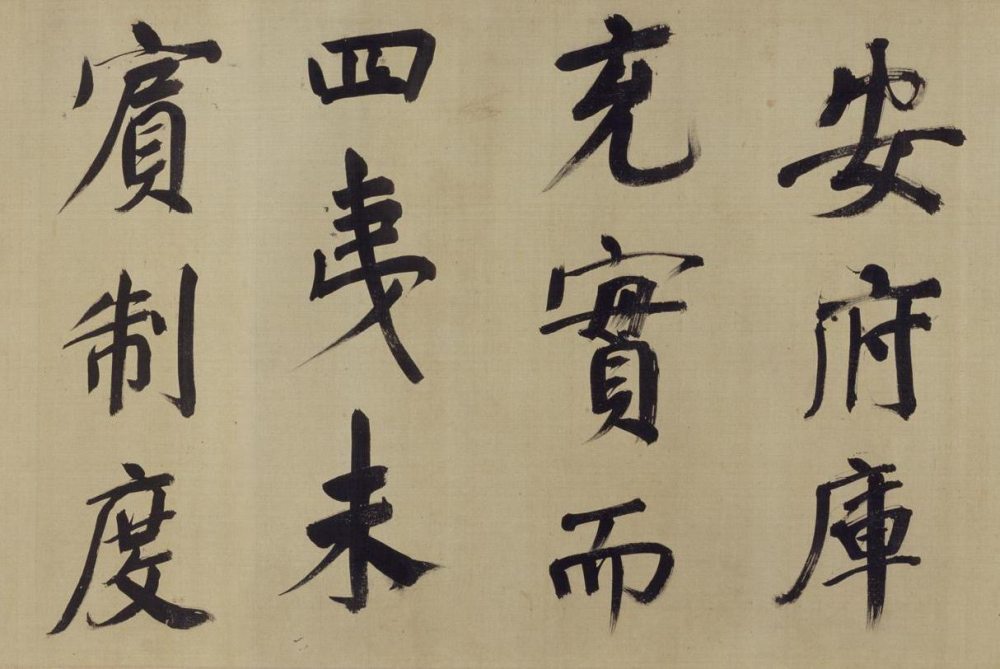 安府庫
充實而
四夷未
賔制度